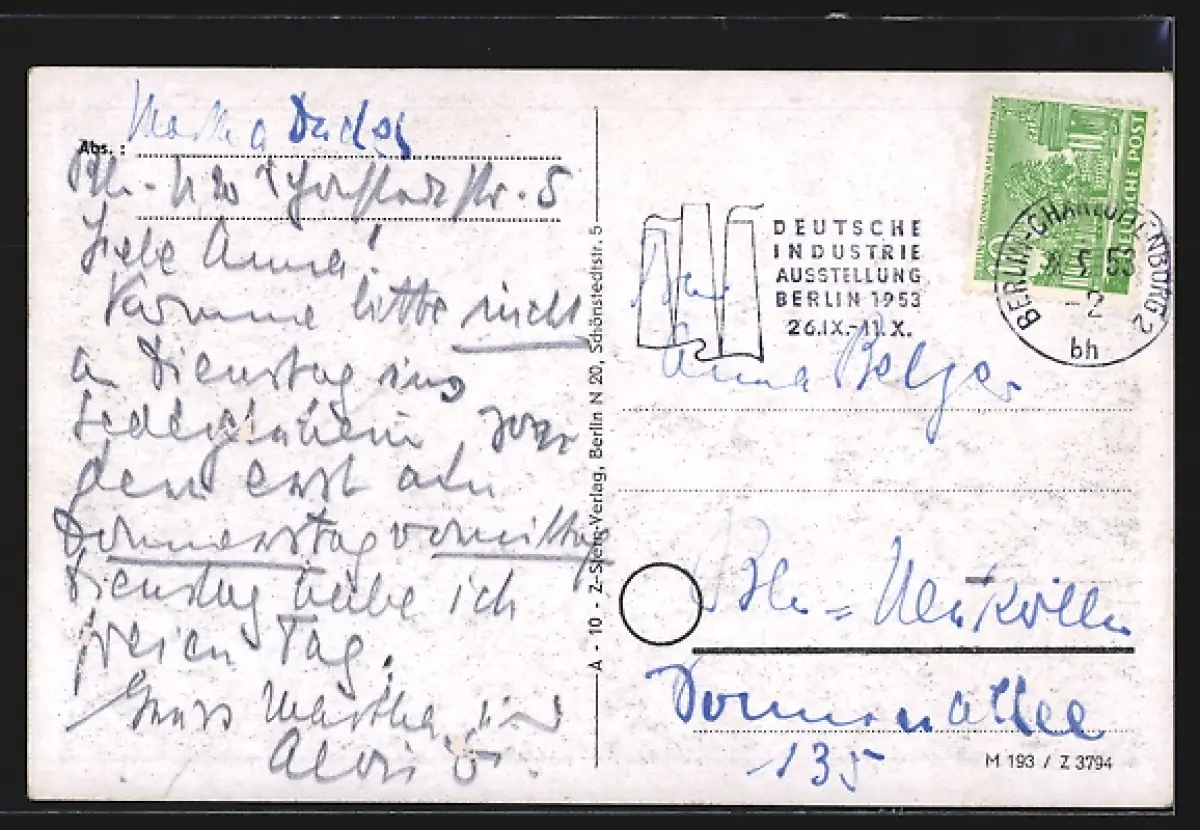 Abs.:
Martha
Bln-N
Liebe Anna!
Komme bitte nicht
am Dienstag ins
sondern erst am
Donnerstag vormittag
Dienstag habe ich
freien Tag.
Gruss Martha und
Alois
A - 10 - Z-Stern-Verlag, Berlin N 20, Schönstedtstr. 5
DEUTSCHE
INDUSTRIE
AUSSTELLUNG
BERLIN 1953
26.IX.-11.X.
DEUTSCHE POST
BERLIN-CHARLOTTENBURG 2
53
bh
Frau
Anna Belger
Bln = Neukölln
Sonnenallee
135
M 193 / Z 3794